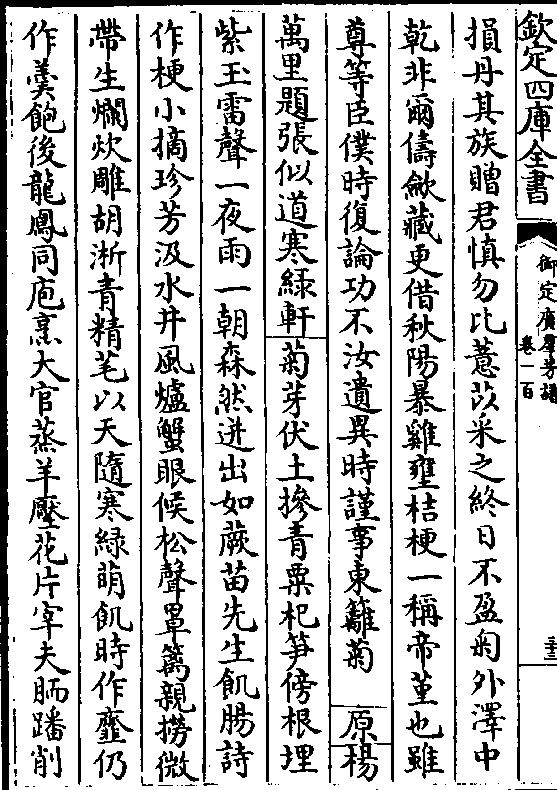 欽定四庫全書
御定廣羣芳譜
卷一百
損丹其族贈君慎勿比薏苡采之終日不盈匊外澤中
乾非爾儔歛藏更借秋陽暴雞壅桔梗一稱帝堇也雖
尊等臣僕時復論功不汝遺異時謹事東籬菊 原楊
萬里題張似道寒緑軒 菊芽伏土摻青粟杞笋傍根埋
紫玉雷聲一夜雨一朝森然迸出如蕨苗先生飢腸詩
作梗小摘珍芳汲水井風爐蟹眼候松聲罩篱親撈微
帶生爛炊雕胡淅青精芼以天隨寒緑萌飢時作虀仍
作羮飽後龍鳳同庖烹大官蒸羊壓花片宰夫胹蹯削